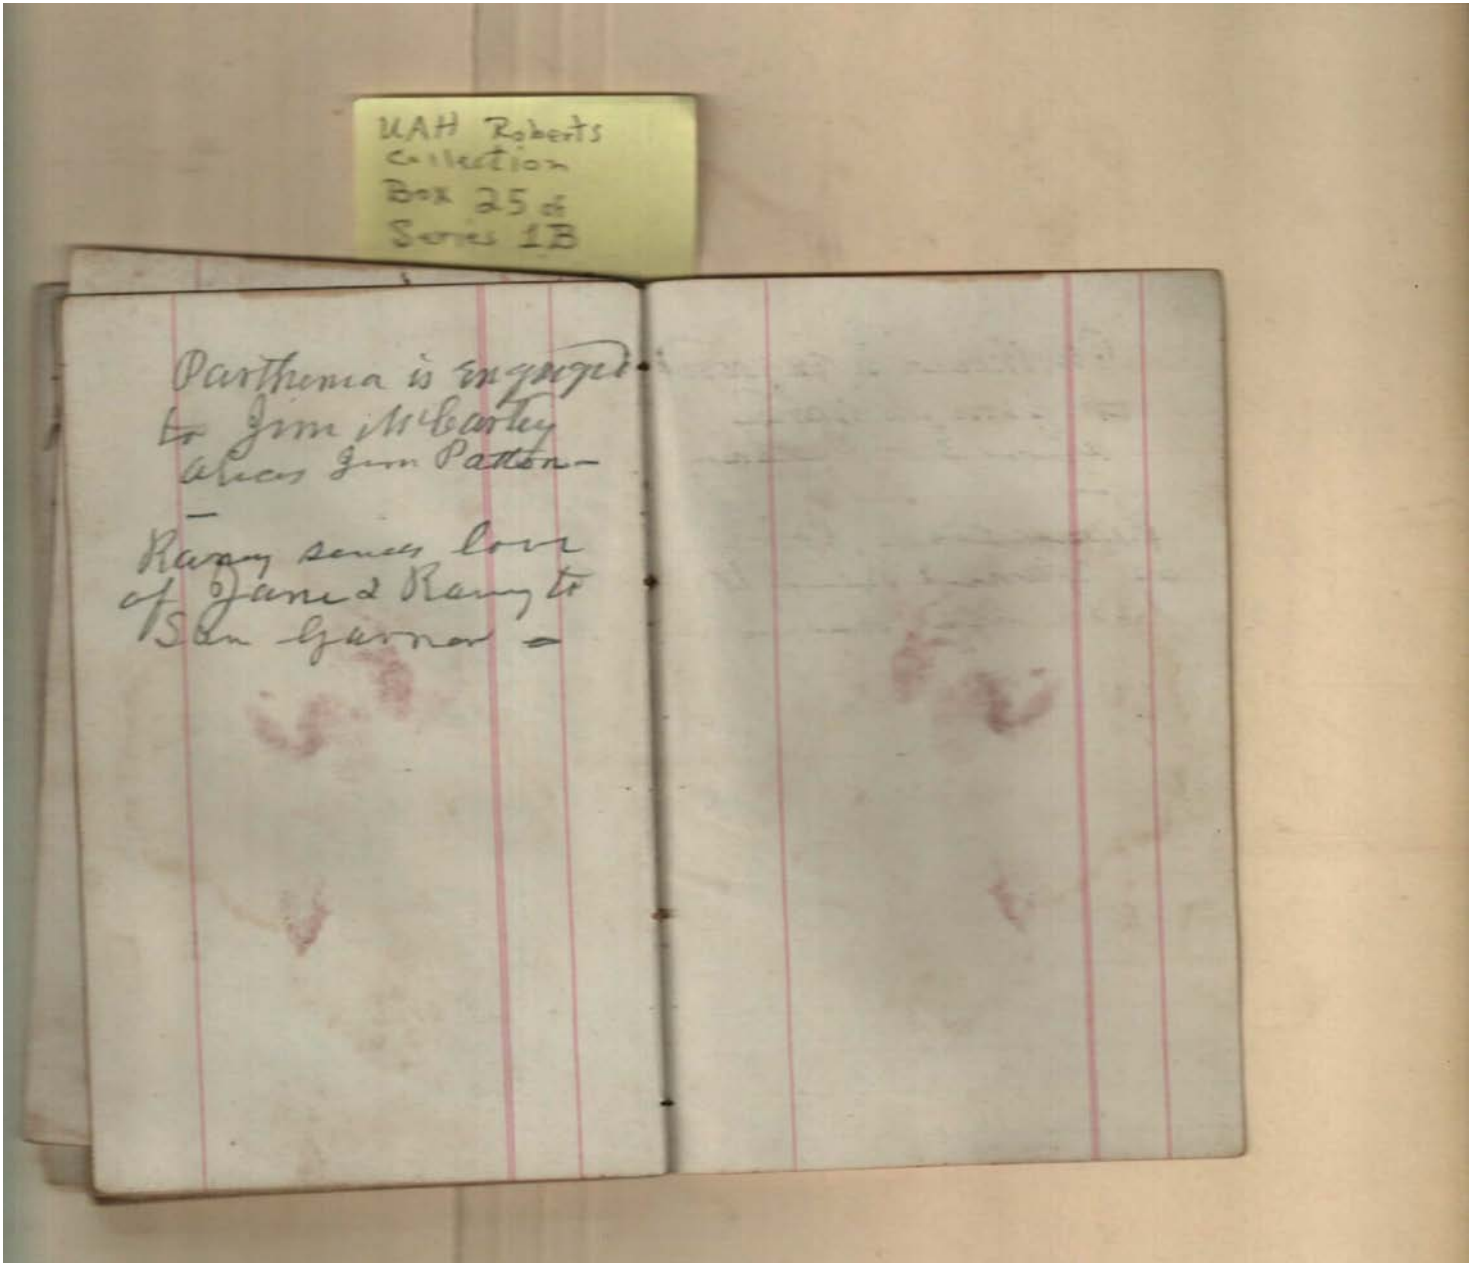 UAH Roberts
Collection
Box 25 of
Series 1B
Parthenia is engaged
to Jim McCarley
alias Jim Patton—
—
sends love
of Jane & to
Garner —